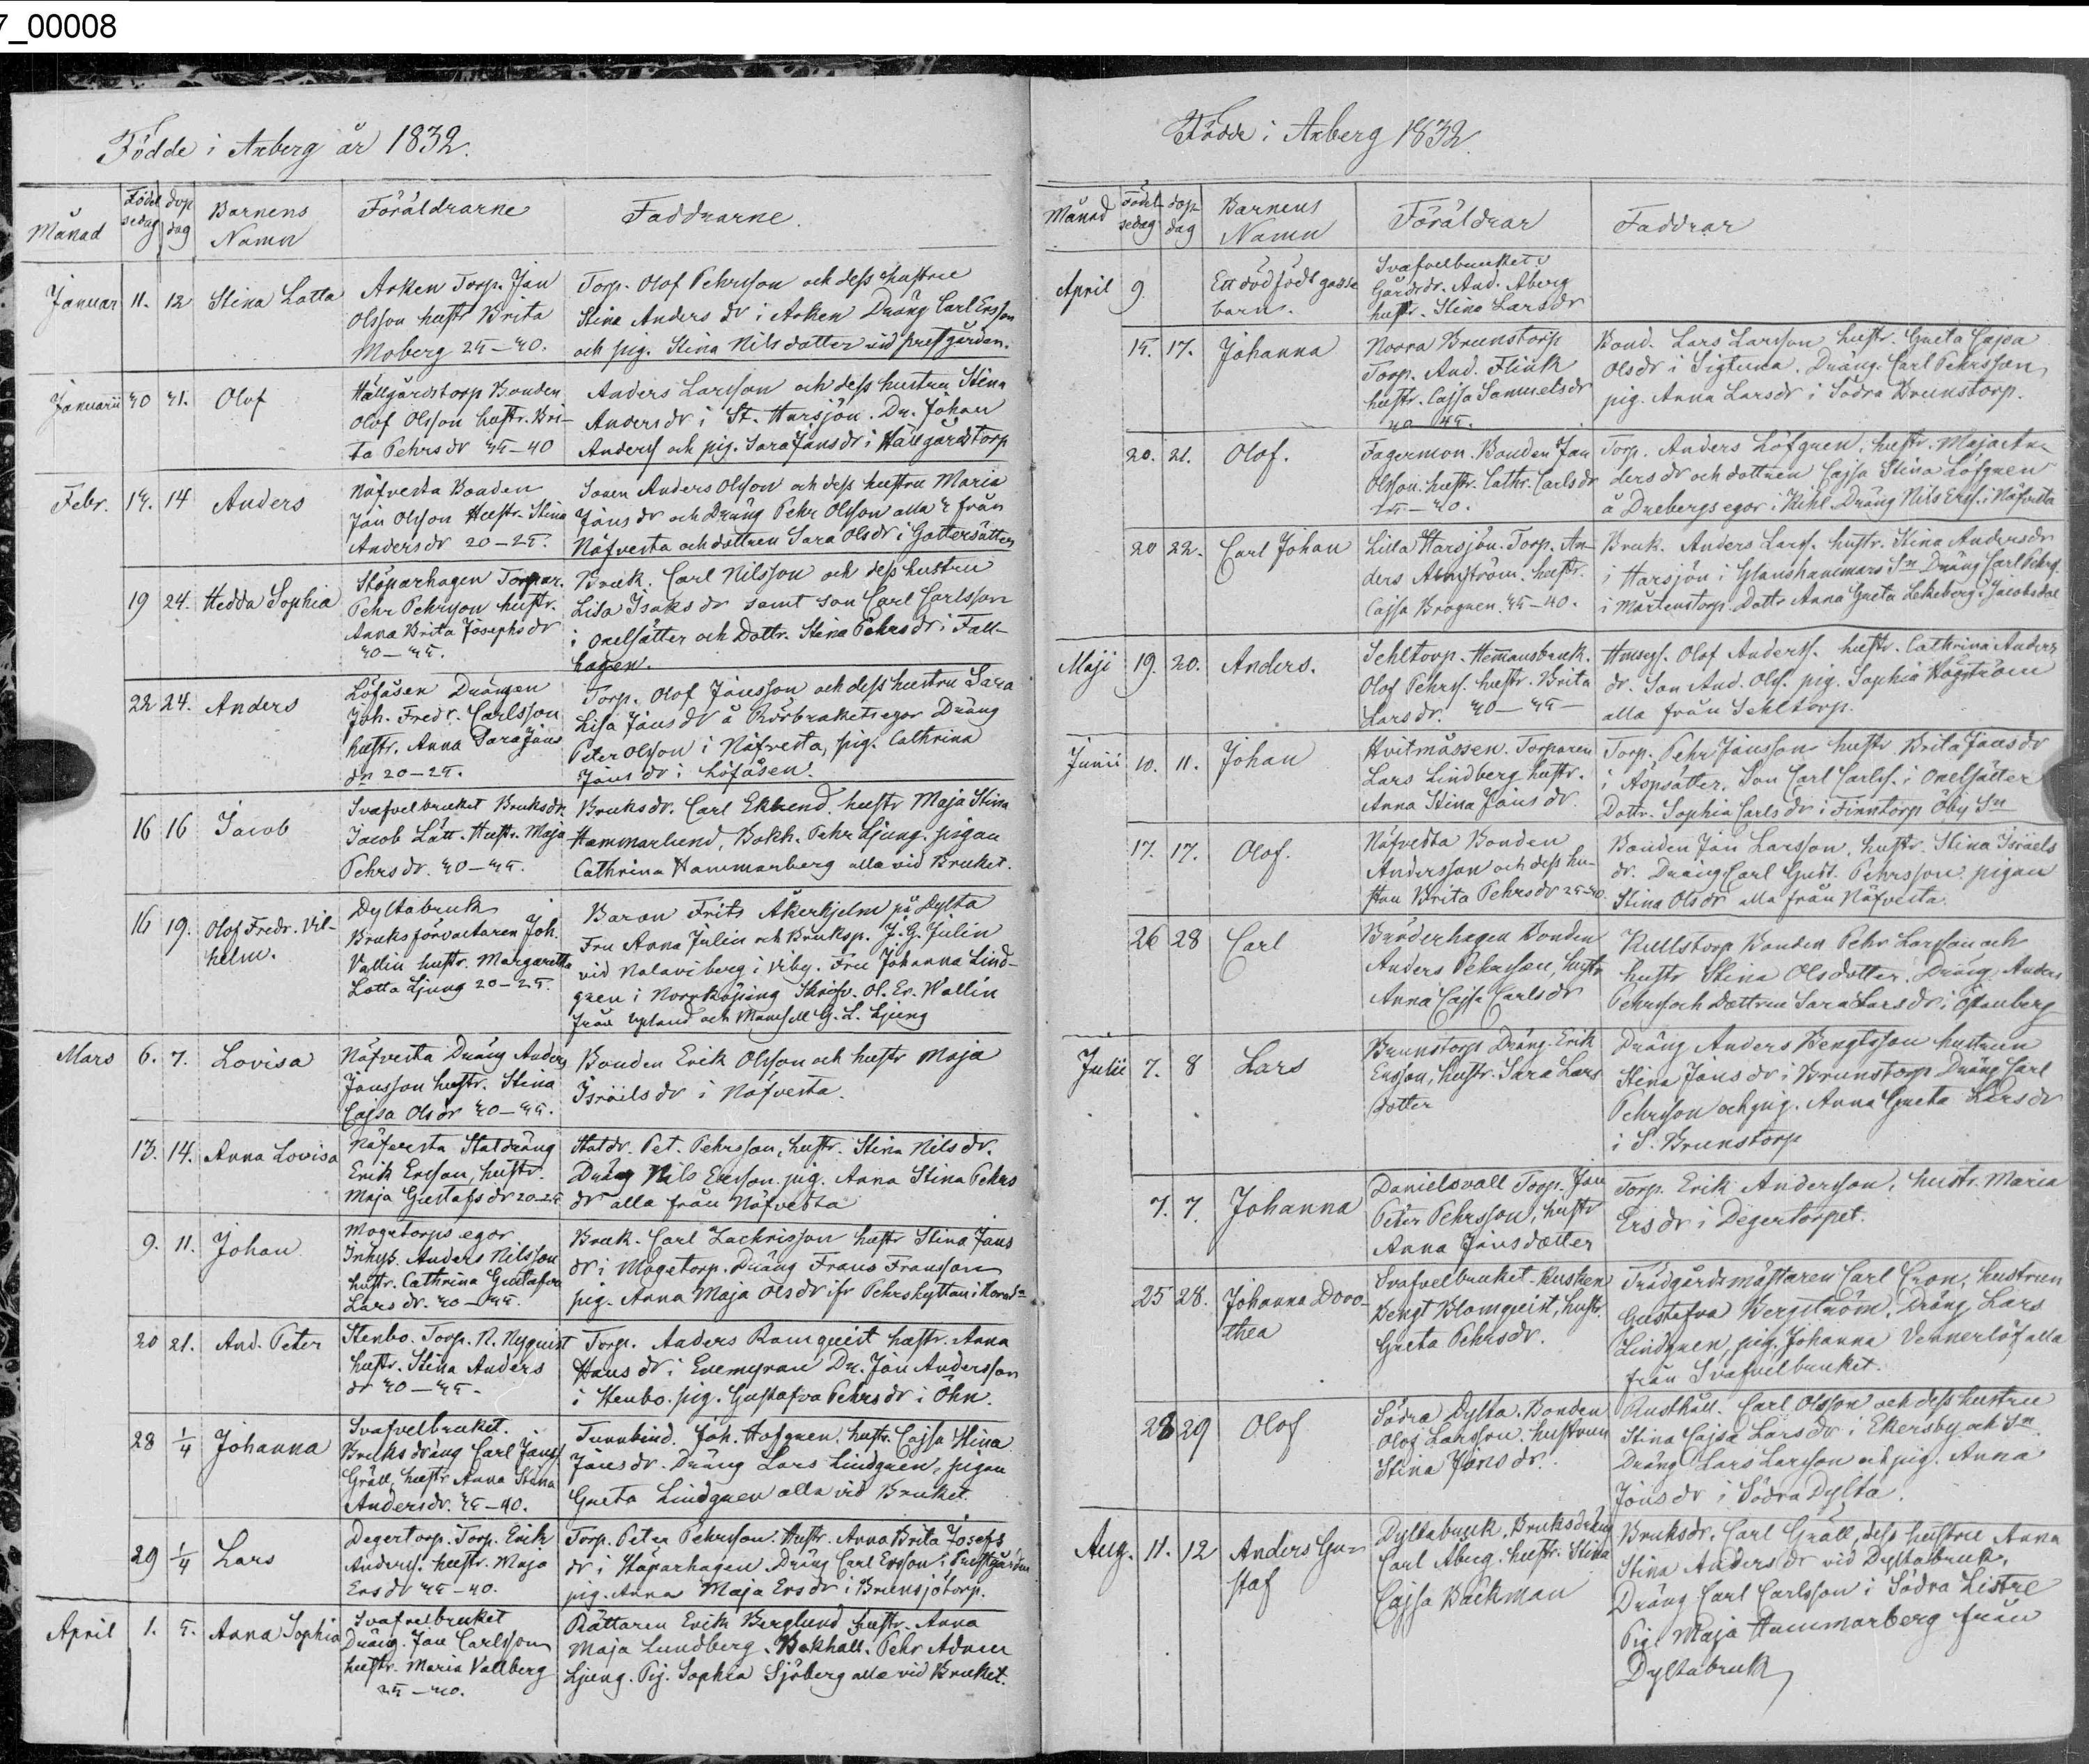 7_00008
Födde i Axberg år 1832.
Månad Födel sedag dop dag Barnens Namn Föräldrarne Faddrarne.
Januar 11. 12 Stina Lotta
Asken Torp. Jan
Olsson hustr Brita
Moberg 25-30.
Torp. Olof Pehrsson och dess hustru
Stina Anders dr i Asken Dräng Carl Ersson
och pig. Stina Nilsdotter vid prestgården.
Januarii 30 31. Olof
Hällgårdstorp Bonden
Olof Olsson hustr. Bri-
ta Pehrsdr 35-40
Anders Larsson och dess hustru Stina
Andersdr i St. Harsjön. Dr. Johan
Anderss och pig. Sara Jansdr i Hällgårdstorp
Febr. 13. 14 Anders
Näfvesta Bonden
Jan Olsson Hustr. Stina
Andersdr 20-25.
Sonen Anders Olsson och dess hustru Maria
Jansdr och Dräng Pehr Olsson alla 3 från
Näfvesta och dottren Sara Olsdr i Gottersätter
19 24. Hedda Sophia
Stöparhagen Torpar.
Pehr Pehrsson hustr.
Anna Brita Josephsdr
30-35.
Bruk. Carl Nilsson och dess hustru
Lisa Isaksdr samt son Carl Carlsson
i Onelsätter och Dottr. Stina Pehrsdr i Fall-
hagen.
22 24. Anders
Löfåsen Drängen
Joh. Fredr. Carlsson
hustr. Anna Sara Jans
dr 20-25.
Torp. Olof Jansson och dess hustru Sara
Lisa Jansdr å Rörbrukets egor Dräng
Peter Olsson i Näfvesta, pig. Cathrina
Jansdr i Löfåsen.
16 16 Jacob
Svafvelbruket Bruksdr.
Jacob Lätt. Hustr. Maja
Pehrsdr. 30-35.
Bruksdr. Carl Eklund. hustr Maja Stina
Hammarlund, Bokh. Pehr Ljung. pigan
Cathrina Hammarberg alla vid Bruket.
16 19. Olof Fredr. Vil-
helm.
Dyltabruk
Bruksförvaltaren Joh.
Vallin hustr. Margaretta
Lotta Ljung 20-25.
Baron Frits Åkerhjelm på Dylta
Fru Anna Julin och Bruksp. J. G. Julin
vid Nalaviberg i Viby. Fru Johanna Lind-
gren i Norrköping Skrifv. Ol. Er. Wallin
från Upland och Mamsell G. L. Ljung
Mars 6. 7. Lovisa
Näfvesta Dräng Anders
Jansson hustr. Stina
Cajsa Olsdr 30-35.
Bonden Erik Olsson och hustr Maja
Israilsdr i Näfvesta.
13. 14. Anna Lovisa
Näfvesta Statdräng
Erik Ersson, hustr.
Maja Gustafsdr 20-25
Statdr. Pet. Pehrsson, hustr. Stina Nilsdr.
Dräng Nils Ersson. pig. Anna Stina Pehrs
dr alla från Näfvesta
9. 11. Johan
Mogetorps egor
Inhys. Anders Nilsson
hustr. Cathrina Gustafva
Larsdr. 30-35.
Bruk. Carl Zachrisson hustr Stina Jans
dr i Mogetorp. Dräng Frans Fransson
pig. Anna Maja Olsdr ifr Pehrshyttan i
20 21. And. Peter
Stenbo. Torp. N. Nyquist
hustr. Stina Anders
dr 30-35.
Torp. Anders Ramquist hustr. Anna
Hansdr i Enemyran Dr. Jan Andersson
i Stenbo. pig. Gustafva Pehrsdr i Öhn.
28 1/4 Johanna
Svafvelbruket.
Bruksdräng Carl Janss
Gräll, hustr Anna Stina
Andersdr. 35-40.
Tunnbind. Joh. Hofgren. hustr. Cajsa Stina
Jansdr. Dräng Lars Lindgren, pigan
Greta Lindgren alla vid Bruket.
29 1/4 Lars
Degertorp. Torp. Erik
Anderss. hustr. Maja
Ersdr 35-40.
Torp. Peter Pehrsson. Hustr. Anna Brita Josefs
dr i Stöparhagen Dräng Carl Ersson i Prestgården
pig. Anna Maja Ersdr i Brunsjötorp.
April 1. 5. Anna Sophia
Svafvelbruket
Dräng. Jan Carlsson
hustr. Maria Vallberg
35-40.
Rättaren Erik Berglund hustr. Anna
Maja Lundberg. Bokhåll. Pehr Adam
Ljung. Pig. Sophia Sjöberg alla vid Bruket.
Födde i Axberg 1832.
Månad Födel- sedag dop- dag Barnens Namn Föräldrar Faddrar
April 9. Ett dödfödt gosse
barn.
Svafvelbruket.
Gårdsdr. And. Åberg
hustr. Stina Larsdr
15. 17. Johanna
Norra Brunstorp
Torp. And. Flink
hustr. Cajsa Samuelsdr
40 45.
Bond. Lars Larsson hustr. Greta Cajsa
Olsdr i Sigtuna. Dräng. Carl Pehrsson,
pig. Anna Larsdr i Södra Brunstorp.
20. 21. Olof.
Fagermon. Bonden Jan
Olsson. hustr. Cathr. Carlsdr
25-30.
Torp. Anders Löfgren, hustr. Maja An-
dersdr och dottren Cajsa Stina Löfgren
å Drebergs egor i Kihl Dräng Nils Erss. i Näfvesta
20 22. Carl Johan
Lilla Harsjön. Torp. An-
ders Almström. hustr.
Cajsa Brogren. 35-40.
Bruk. Anders Larss. hustr. Stina Andersdr
i Harsjön i Glanshammars Sn Dräng Carl Pehrss
i Mårtenstorp. Dottr Anna Greta Lekeberg i Jacobsdal
Maji 19. 20. Anders.
Sehltorp. Hemansbruk.
Olof Pehrss. hustr. Brita
Larsdr. 30-35-
Hmseg. Olof Anderss. hustr. Cathrina Anders
dr. Son And. Olss. pig. Sophia Högström
alla från Sehltorp.
Junii 10. 11. Johan
Hvitmåssen. Torparen
Lars Lindberg hustr.
Anna Stina Jansdr.
Torp. Pehr Jansson hustr Brita Jansdr
i Äspsätter. Son Carl Carlss. i Onelsätter
Dottr. Sophia Carlsdr i Finntorp Öby Sn
17. 17. Olof.
Näfvesta Bonden
Andersson och dess hu-
stru Brita Pehrsdr 25-30.
Bonden Jan Larsson, hustr. Stina Israels
dr. Dräng Carl Gust. Pehrsson pigan
Stina Olsdr alla från Näfvesta.
26 28 Carl
Bonden
Anders Pehrsson, hustr
Anna Cajsa Carlsdr
Kullstorp Bonden Pehr Larsson och
hustr Stina Olsdotter. Dräng Anders
Pehrss och Dottren Sara Larsdr i Östanberg
Julii 7. 8 Lars
Brunstorp Dräng Erik
Ersson, hustr. Sara Lars
dotter
Dräng Anders Bengtsson hustrun
Stina Jansdr i Brunstorp Dräng Carl
Pehrsson och pig. Anna Greta Larsdr
i S. Brunstorp
7. 7. Johanna
Danielsvall Torp. Jan
Peter Pehrsson, hustr
Anna Jansdotter
Torp. Erik Andersson, hustr. Maria
Ersdr i Degertorpet.
25 28. Johanna Doro-
thea
Svafvelbruket. Kusken
Bengt Blomqvist, hustr.
Greta Pehrsdr.
Trädgårdsmästaren Carl Cron, hustrun
Gustafva Bergström, Dräng Lars
Lindgren, pig. Johanna Vennerlöf alla
från Svafvelbruket.
28 29 Olof
Södra Dylta. Bonden
Olof Larsson. hustrun
Stina Jansdr.
Rusthåll. Carl Olsson och dess hustru
Stina Cajsa Larsdr i Ekersby och Sn.
Dräng Lars Larsson och pig. Anna
Jansdr i Södra Dylta.
Aug. 11. 12 Anders Gu-
staf
Dyltabruk. Bruksdräng
Carl Åberg. hustr. Stina
Cajsa Backman
Bruksdr. Carl Gräll, dess hustru Anna
Stina Andersdr vid Dyltabruk.
Dräng Carl Carlsson i Södra Listre
Pig. Maja Hammarberg från
Dyltabruk